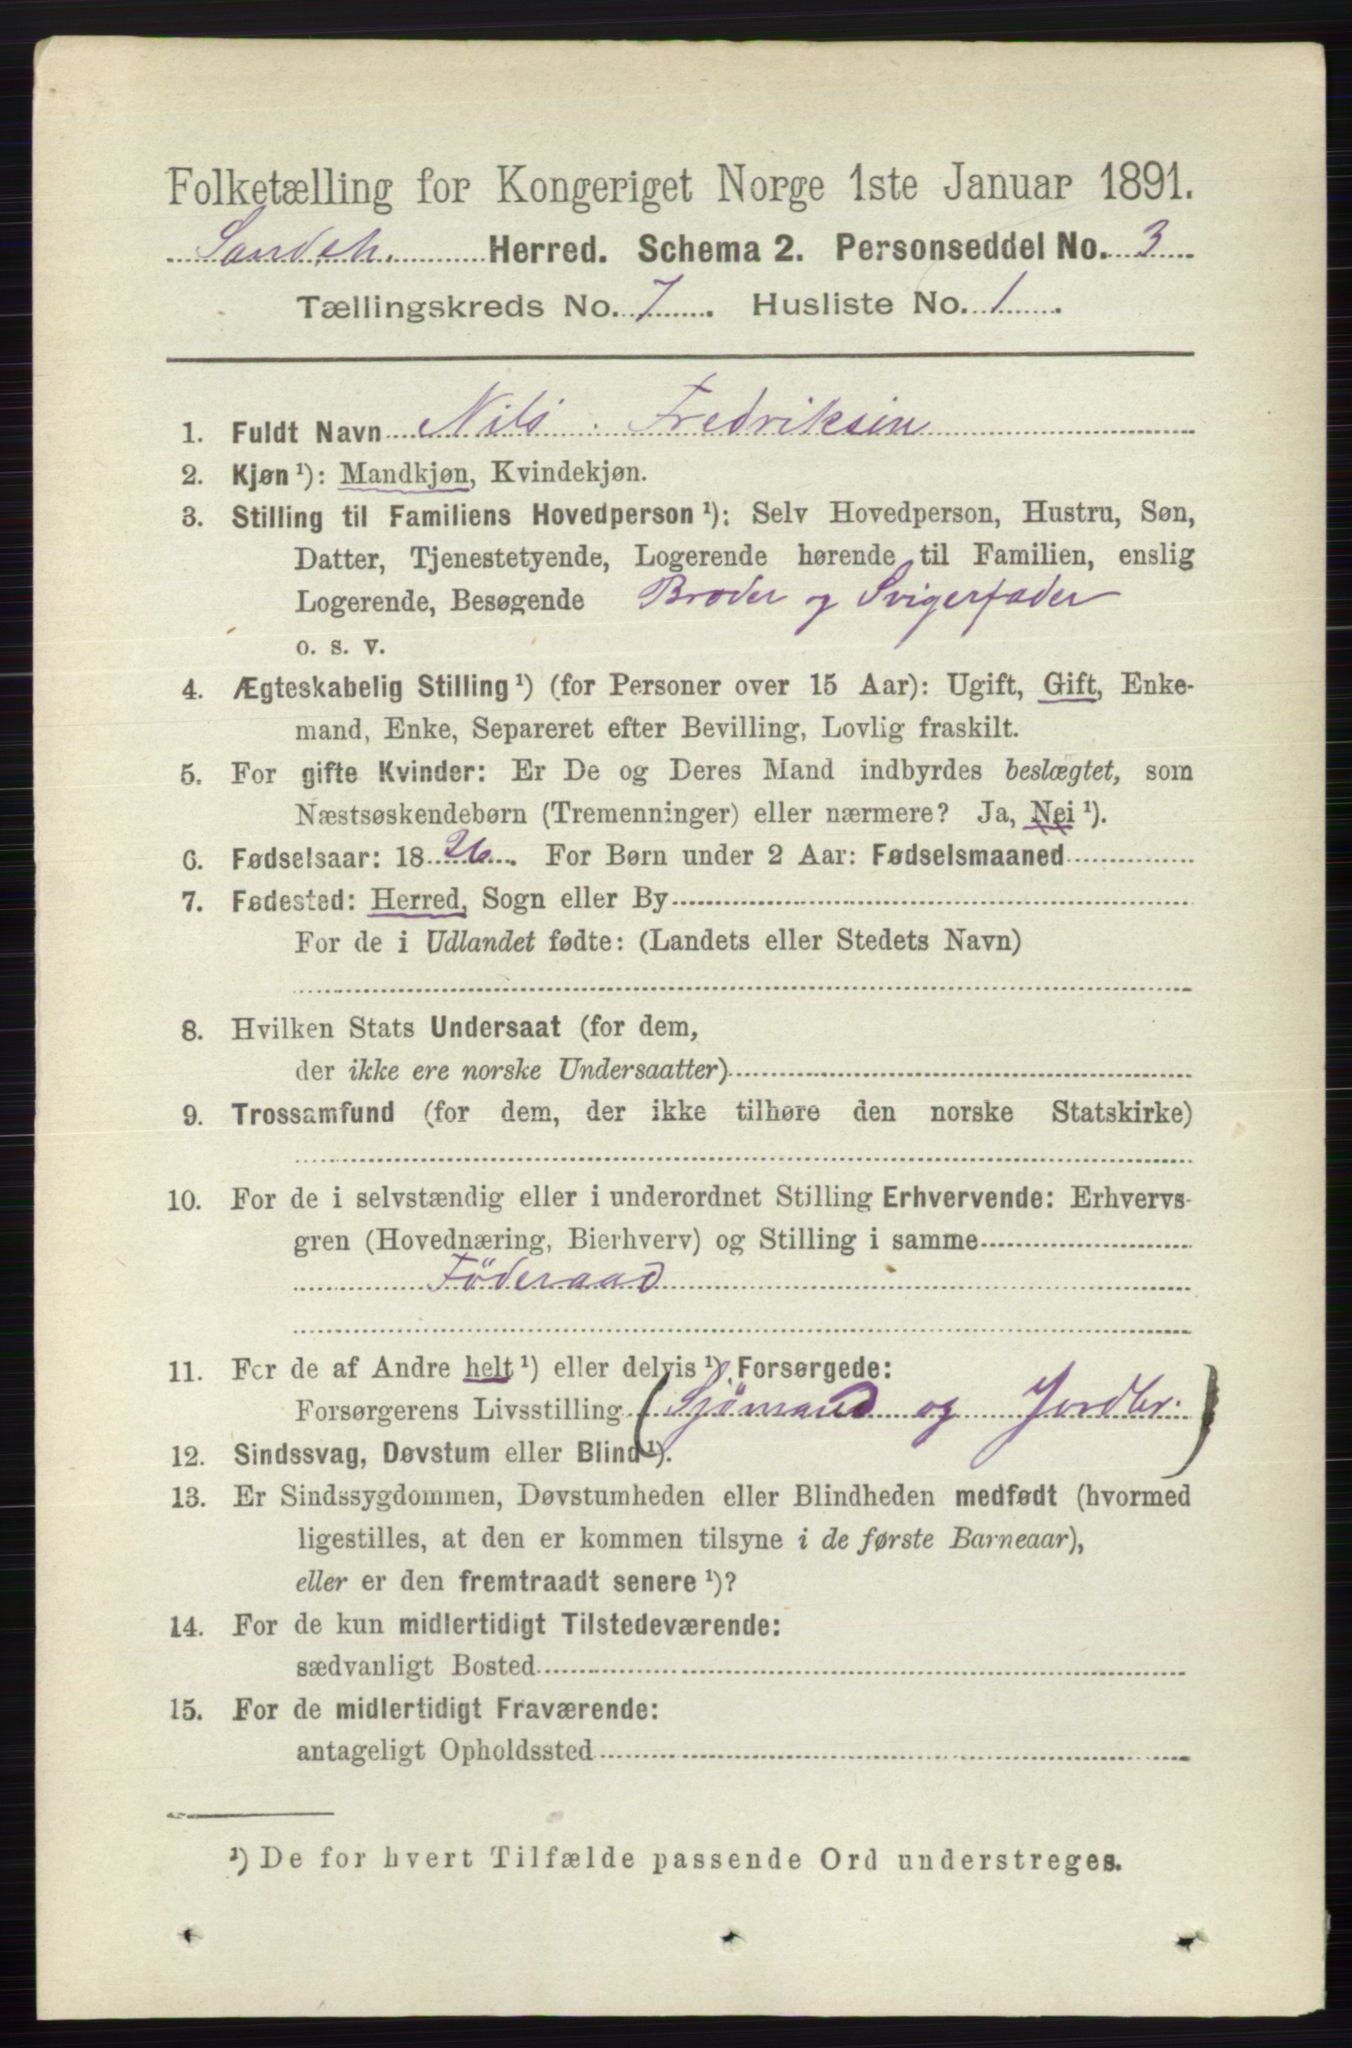 Folketælling for Kongeriget Norge 1ste Januar 1891.
Sandeh. Herred. Schema 2. Personseddel No. 3
Tællingskreds No. 7. Husliste No. 1.
1. Fuldt Navn Nils Fredriksen
2. Kjøn¹): Mandkjøn, Kvindekjøn.
3. Stilling til Familiens Hovedperson¹): Selv Hovedperson, Hustru, Søn,
Datter, Tjenestetyende, Logerende hørende til Familien, enslig
Logerende, Besøgende Broder og Svigerfader
o. s. v.
4. Ægteskabelig Stilling¹) (for Personer over 15 Aar): Ugift, Gift, Enke-
mand, Enke, Separeret efter Bevilling, Lovlig fraskilt.
5. For gifte Kvinder: Er De og Deres Mand indbyrdes beslægtet, som
Næstsøskendebørn (Tremenninger) eller nærmere? Ja, Nei¹).
6. Fødselsaar: 1826. For Børn under 2 Aar: Fødselsmaaned
7. Fødested: Herred, Sogn eller By
For de i Udlandet fødte: (Landets eller Stedets Navn)
8. Hvilken Stats Undersaat (for dem,
der ikke ere norske Undersaatter)
9. Trossamfund (for dem, der ikke tilhøre den norske Statskirke)
10. For de i selvstændig eller i underordnet Stilling Erhvervende: Erhvervs-
gren (Hovednæring, Bierhverv) og Stilling i samme
Föderaad
11. For de af Andre helt¹) eller delvis¹) Forsørgede:
Forsørgerens Livsstilling (Sjömand og Jordbr.)
12. Sindssvag, Døvstum eller Blind¹).
13. Er Sindssygdommen, Døvstumheden eller Blindheden medfødt (hvormed
ligestilles, at den er kommen tilsyne i de første Barneaar),
eller er den fremtraadt senere¹)?
14. For de kun midlertidigt Tilstedeværende:
sædvanligt Bosted
15. For de midlertidigt Fraværende:
antageligt Opholdssted
¹) De for hvert Tilfælde passende Ord understreges.